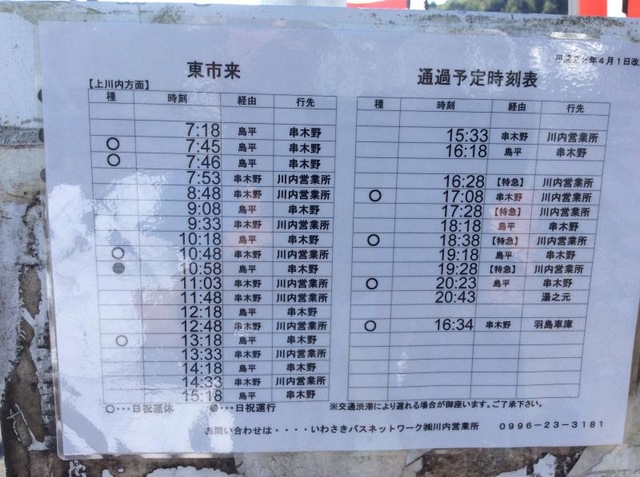 東市来 通過予定時刻表 平成26年4月1日改
【上川内方面】
種 時刻 経由 行先
7:18 島平 串木野
○ 7:45 島平 串木野
○ 7:46 島平 串木野
7:53 串木野 川内営業所
8:48 串木野 川内営業所
9:08 島平 串木野
9:33 串木野 川内営業所
10:18 島平 串木野
○ 10:48 串木野 川内営業所
● 10:58 島平 串木野
11:03 串木野 川内営業所
11:48 串木野 川内営業所
12:18 島平 串木野
12:48 串木野 川内営業所
○ 13:18 島平 串木野
13:33 串木野 川内営業所
14:18 島平 串木野
14:33 串木野 川内営業所
15:18 島平 串木野
種 時刻 経由 行先
15:33 串木野 川内営業所
16:18 島平 串木野
16:28 【特急】 川内営業所
○ 17:08 串木野 川内営業所
17:28 【特急】 川内営業所
18:18 島平 串木野
○ 18:38 【特急】 川内営業所
19:18 島平 串木野
19:28 【特急】 川内営業所
○ 20:23 島平 串木野
20:43 湯之元
○ 16:34 串木野 羽島車庫
○・・・日祝運休 ●・・・日祝運行 ※交通渋滞により遅れる場合が御座います。ご了承下さい。
お問い合わせは・・・・いわさきバスネットワーク㈱川内営業所 0996-23-3181